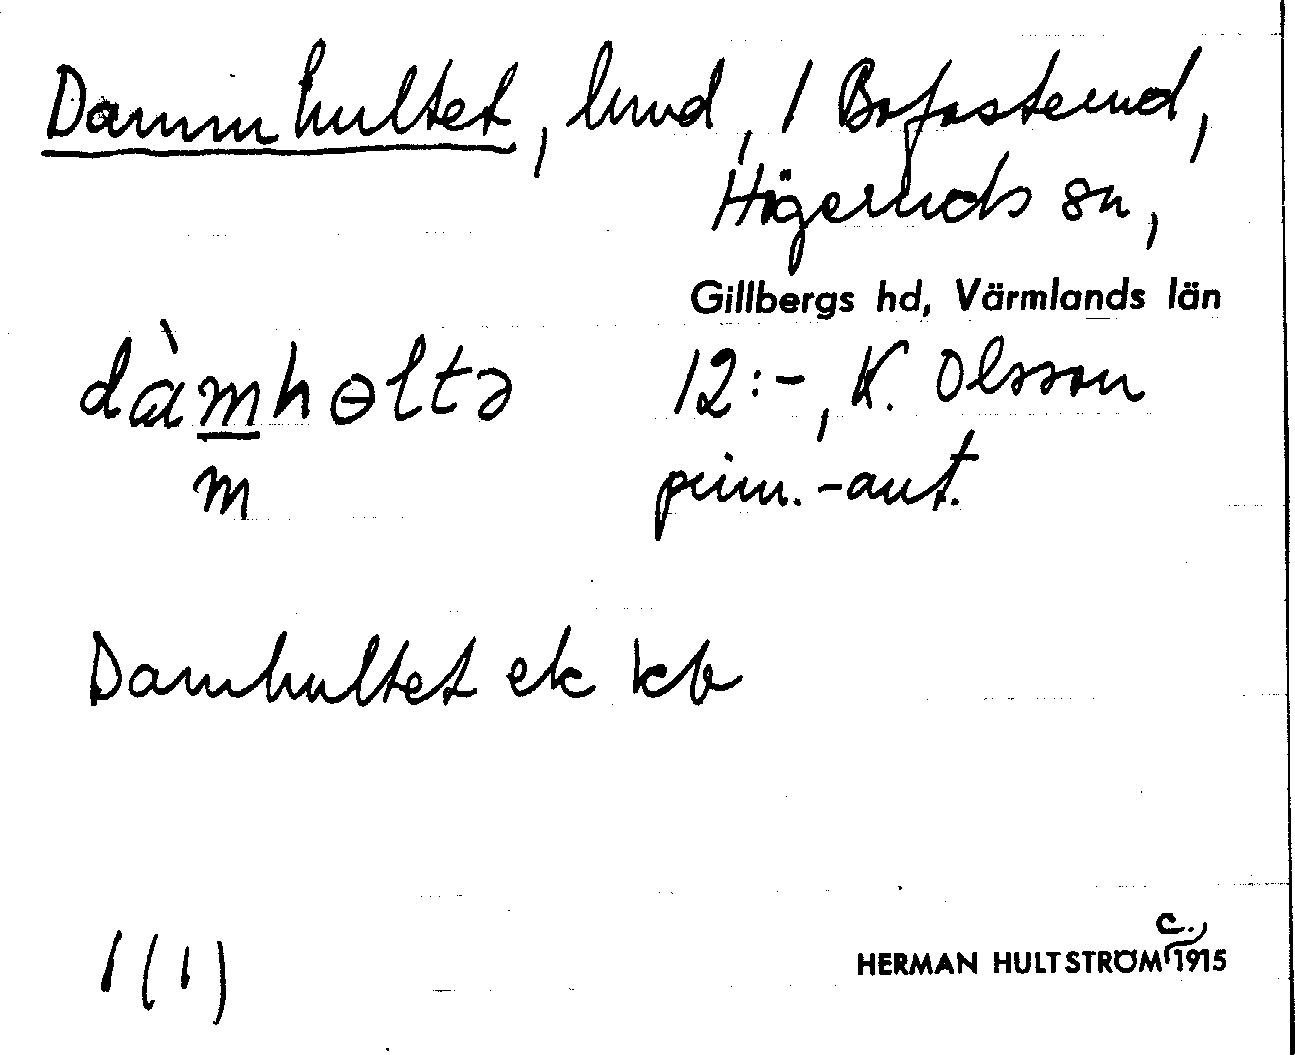 Dammhultet, lund, / Bofasterud,
Högeruds sn,
Gillbergs hd, Värmlands län
dàmhɵltə 12:-, K. Olsson
m prim.-ant.
Damhultet ek kb
1(1)
c.
HERMAN HULTSTRÖM 1915